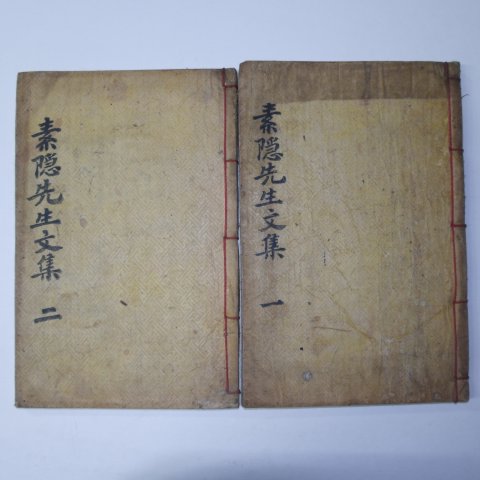 素隱先生文集 一
素隱先生文集 二